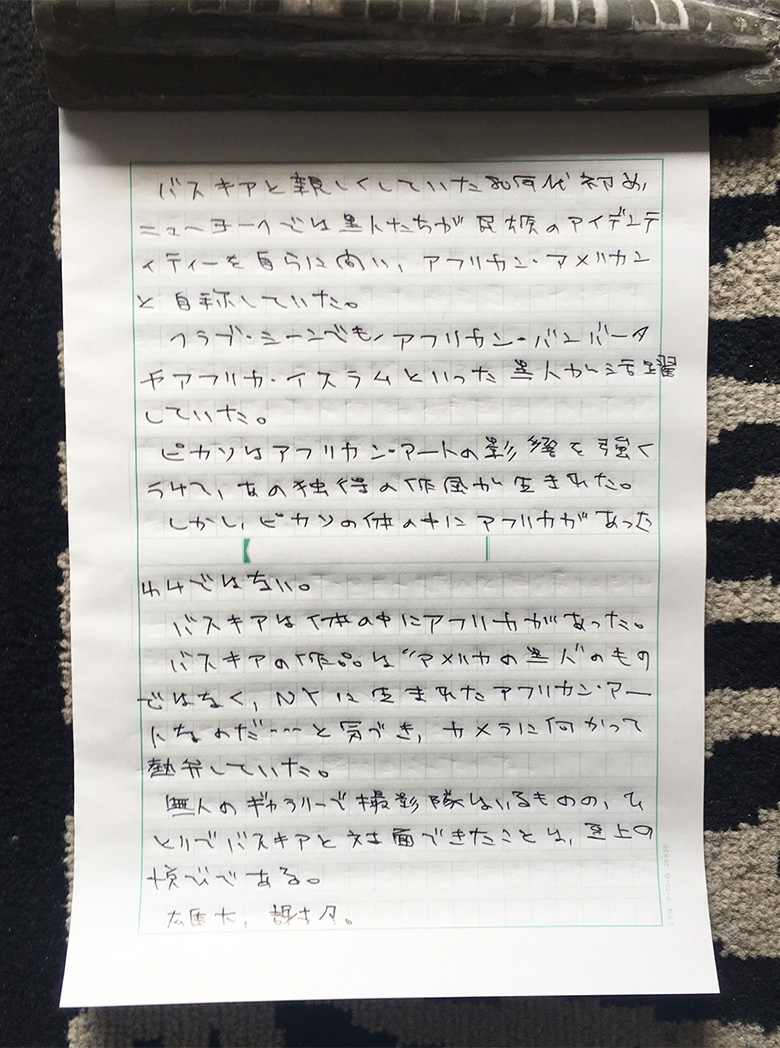 バスキアと親しくしていた80年代初め，
ニューヨークでは黒人たちが民族のアイデンテ
ィティーを自らに向い，アフリカン・アメリカン
と自称していた。
クラブ・シーンでも，アフリカン・バンバータ
やアフリカ・イスラムといった黒人が活躍
していた。
ピカソはアフリカン・アートの影響を強く
うけて，あの独得の作風が生まれた。
しかし，ピカソの体の中にアフリカがあった
わけではない。
バスキアは体の中にアフリカがあった。
バスキアの作品は“アメリカの黒人”のもの
ではなく，NYに生まれたアフリカン・アー
トなのだ……と気づき，カメラに向かって
熱弁していた。
無人のギャラリーで撮影隊はいるものの，ひ
とりでバスキアと対面できたことは，至上の
悦びである。
コクヨ ケ-70 20×20